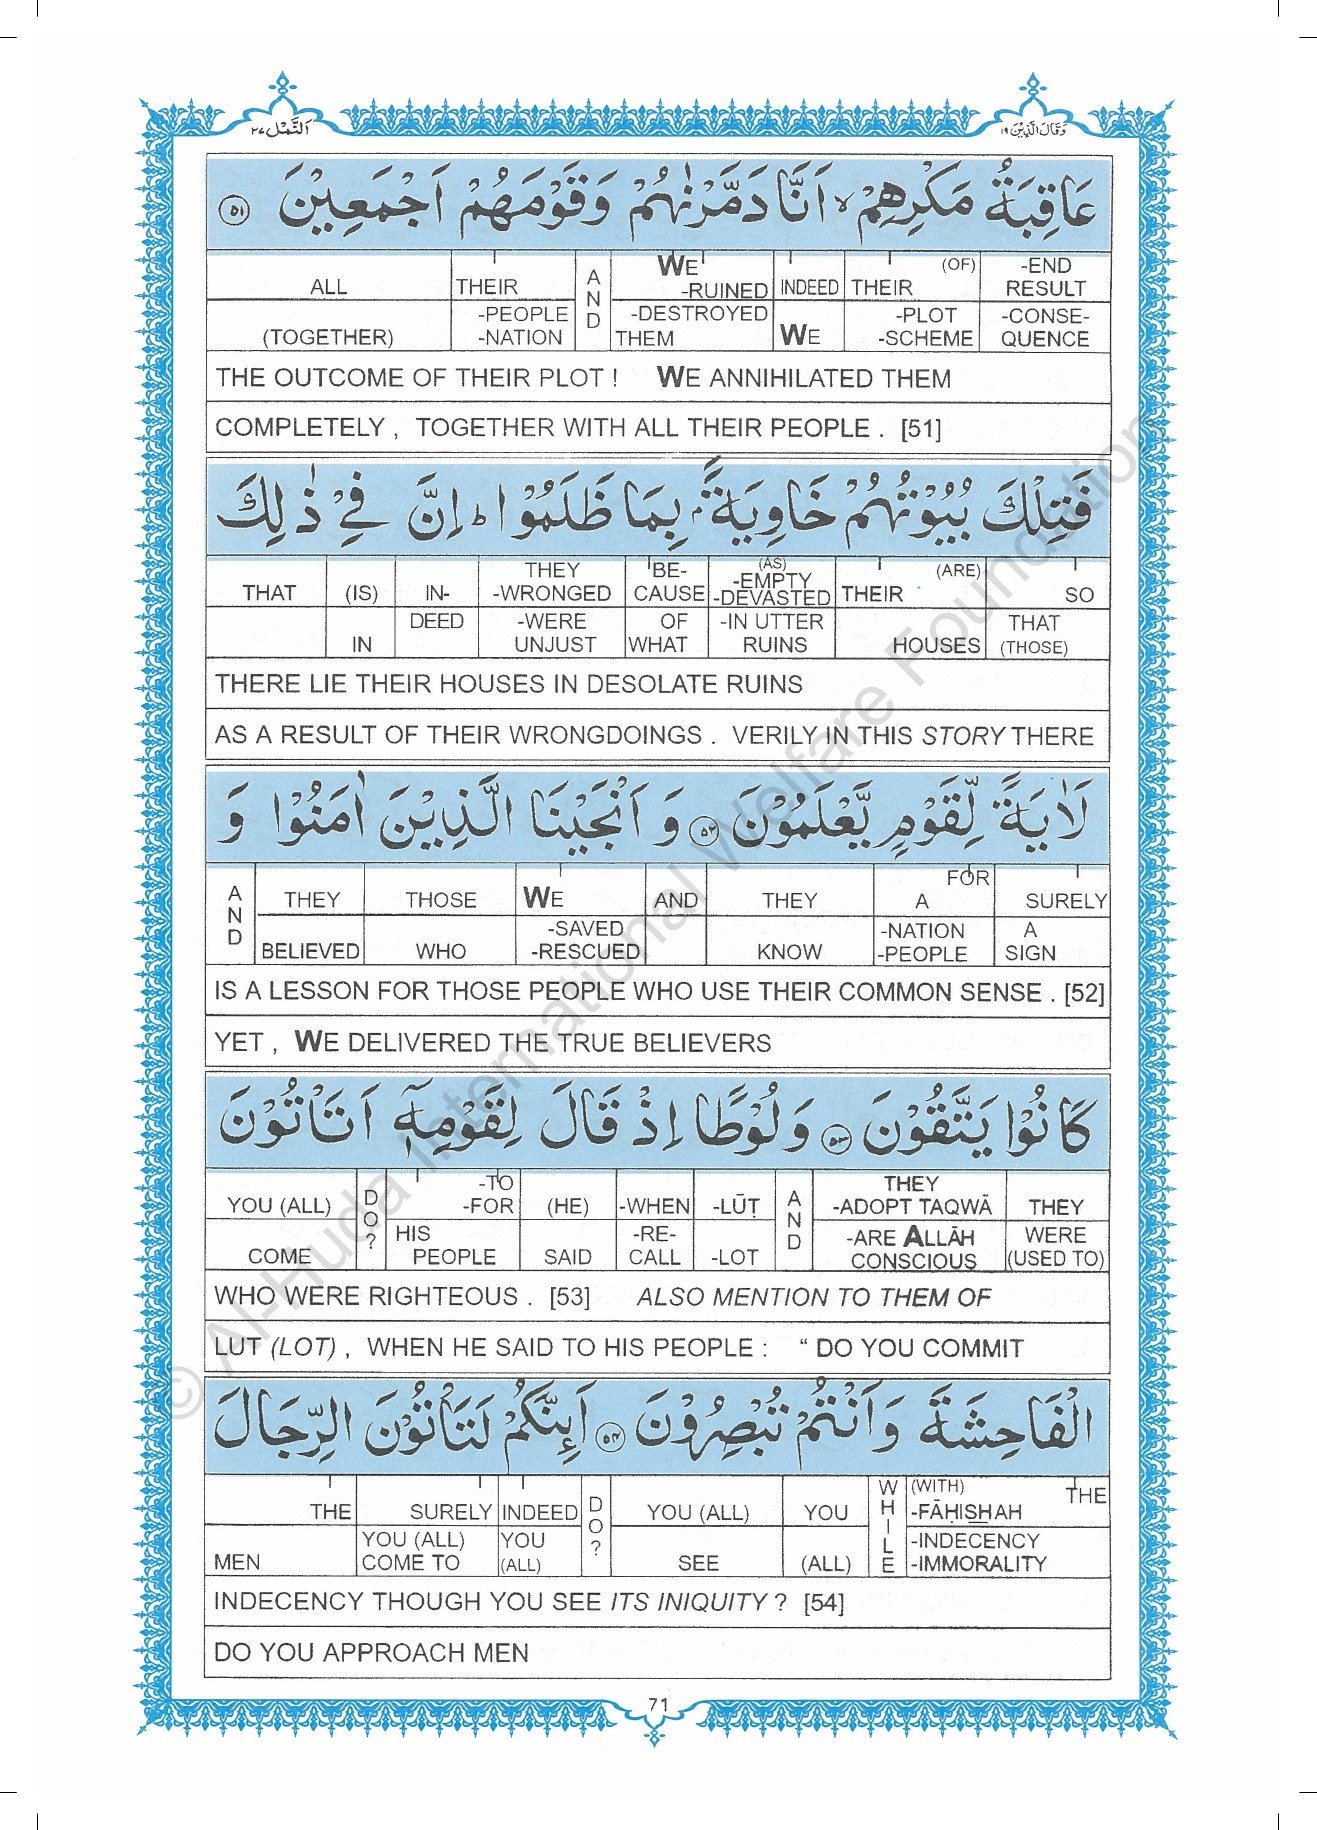 اَلنَّمْل ٢٧
وَقَالَ الَّذِيْنَ ١٩
عَاقِبَةُ مَكْرِهِمْ ۙ اَنَّا دَمَّرْنٰهُمْ وَقَوْمَهُمْ اَجْمَعِيْنَ ۝٥١
ALL THEIR AND WE -RUINED INDEED THEIR (OF) -END RESULT
(TOGETHER) -PEOPLE -NATION -DESTROYED THEM WE -PLOT -SCHEME -CONSE- QUENCE
THE OUTCOME OF THEIR PLOT ! WE ANNIHILATED THEM
COMPLETELY , TOGETHER WITH ALL THEIR PEOPLE . [51]
فَتِلْكَ بُيُوْتُهُمْ خَاوِيَةًۢ بِمَا ظَلَمُوْا ؕ اِنَّ فِيْ ذٰلِكَ
THAT (IS) IN- THEY -WRONGED BE- CAUSE (AS) -EMPTY -DEVASTED THEIR (ARE) SO
IN DEED -WERE UNJUST OF WHAT -IN UTTER RUINS HOUSES THAT (THOSE)
THERE LIE THEIR HOUSES IN DESOLATE RUINS
AS A RESULT OF THEIR WRONGDOINGS . VERILY IN THIS STORY THERE
لَاٰيَةً لِّقَوْمٍ يَّعْلَمُوْنَ ۝٥٢ وَ اَنْجَيْنَا الَّذِيْنَ اٰمَنُوْا وَ
AND THEY THOSE WE AND THEY FOR A SURELY
BELIEVED WHO -SAVED -RESCUED KNOW -NATION -PEOPLE A SIGN
IS A LESSON FOR THOSE PEOPLE WHO USE THEIR COMMON SENSE . [52]
YET , WE DELIVERED THE TRUE BELIEVERS
كَانُوْا يَتَّقُوْنَ ۝٥٣ وَلُوْطًا اِذْ قَالَ لِقَوْمِهٖٓ اَتَاْتُوْنَ
YOU (ALL) DO? -TO -FOR (HE) -WHEN -LŪṬ AND THEY -ADOPT TAQWĀ THEY
COME HIS PEOPLE SAID -RE- CALL -LOT -ARE ALLĀH CONSCIOUS WERE (USED TO)
WHO WERE RIGHTEOUS . [53] ALSO MENTION TO THEM OF
LUT (LOT) , WHEN HE SAID TO HIS PEOPLE : “ DO YOU COMMIT
الْفَاحِشَةَ وَاَنْتُمْ تُبْصِرُوْنَ ۝٥٤ اَئِنَّكُمْ لَتَاْتُوْنَ الرِّجَالَ
THE SURELY INDEED DO? YOU (ALL) YOU WHILE (WITH) THE -FĀḤISHAH
MEN YOU (ALL) COME TO YOU (ALL) SEE (ALL) -INDECENCY -IMMORALITY
INDECENCY THOUGH YOU SEE ITS INIQUITY ? [54]
DO YOU APPROACH MEN
71
© Al-Huda International Welfare Foundation